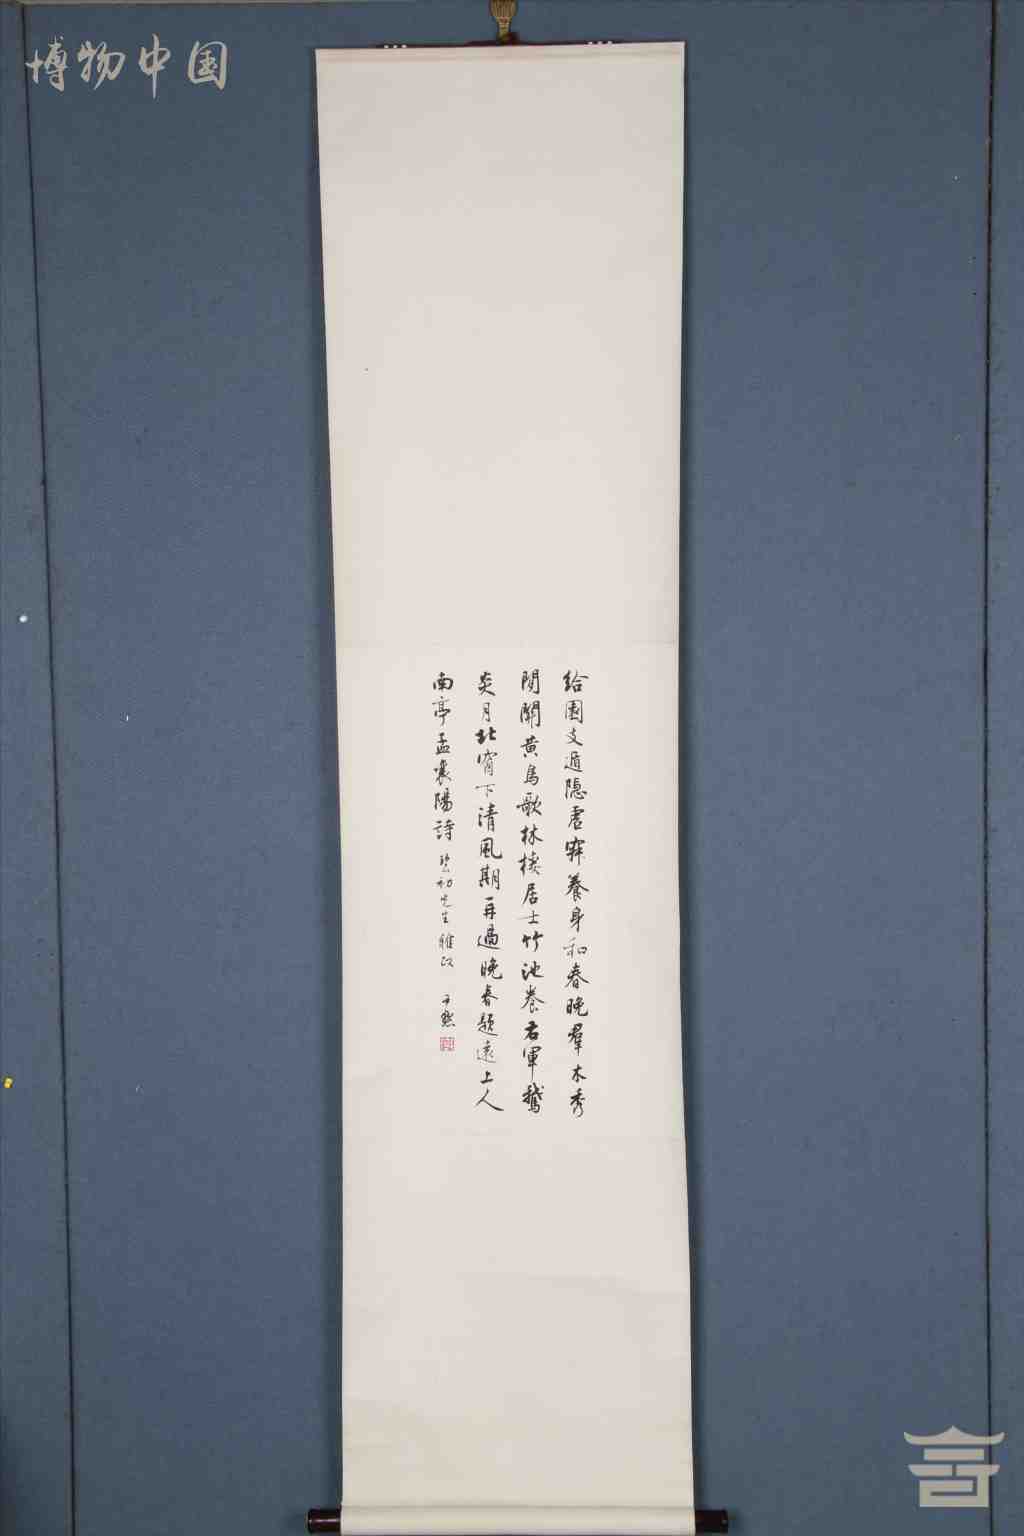 博物中国
給園支遁隱虛寂養身和春晚羣木秀
間關黃鳥歌林棲居士竹池養右軍鵝
炎月北窗下清風期再過晚春題遠上人
南亭孟襄陽詩 碧初先生雅政 尹默